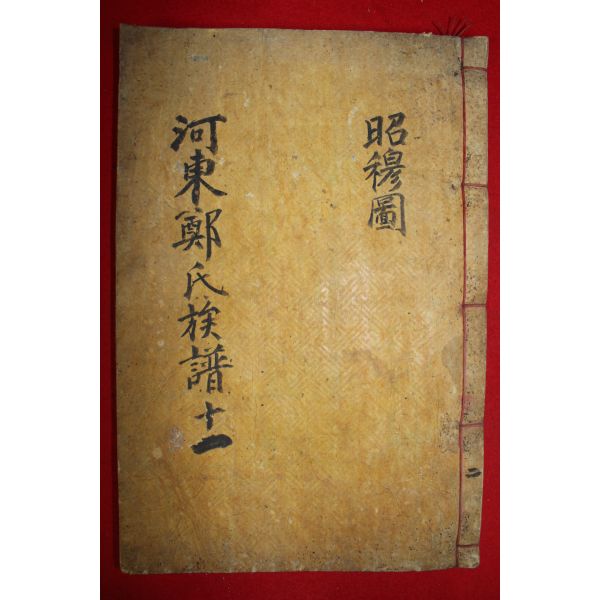 昭穆圖
河東鄭氏族譜 十一
二